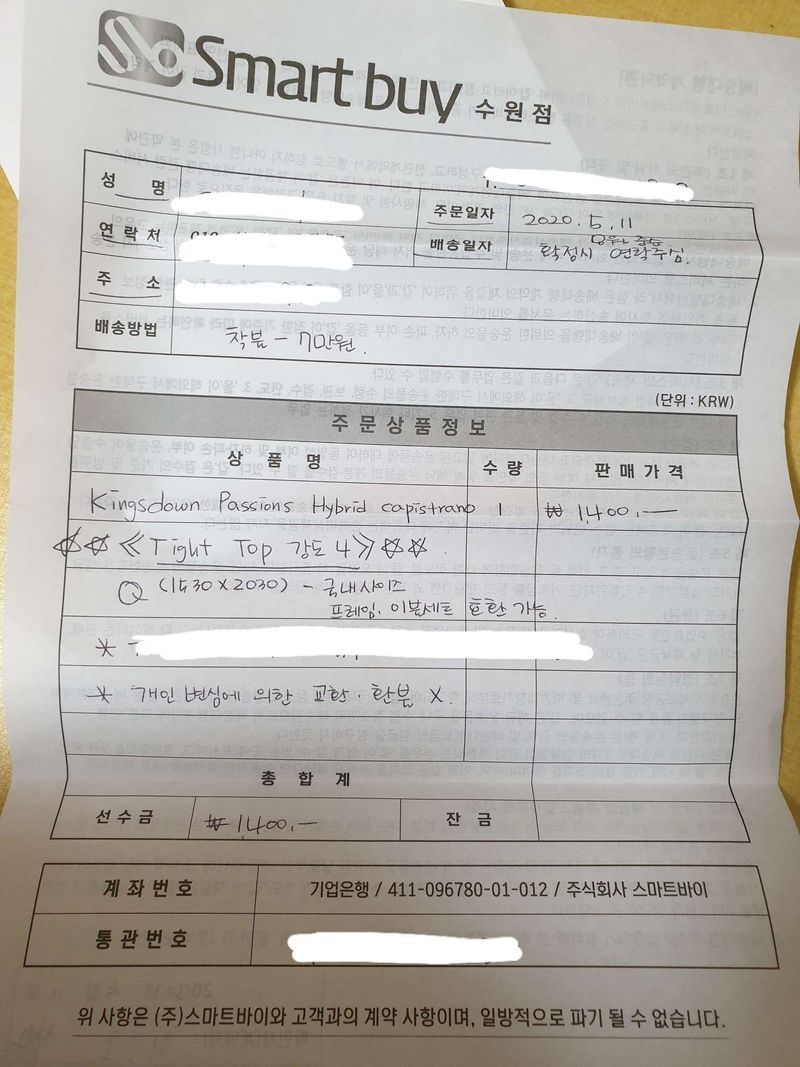 Smart buy 수원점
성 명
주문일자 2020. 5. 11
연락처
배송일자 확정시 연락주심.
주 소
배송방법 착불 - 7만원.
(단위 : KRW)
주문상품정보
상 품 명 수 량 판 매 가 격
Kingsdown Passions Hybrid capistrano 1 ₩ 1,400.-
☆☆ ≪ Tight Top 강도 4 ≫ ☆☆
Q (1530 X 2030) - 국내사이즈
프레임. 이불세트 호환 가능.
*
* 개인 변심에 의한 교환 · 환불 X.
총 합 계
선 수 금 ₩ 1,400.- 잔 금
계 좌 번 호 기업은행 / 411-096780-01-012 / 주식회사 스마트바이
통 관 번 호
위 사항은 (주)스마트바이와 고객과의 계약 사항이며, 일방적으로 파기 될 수 없습니다.